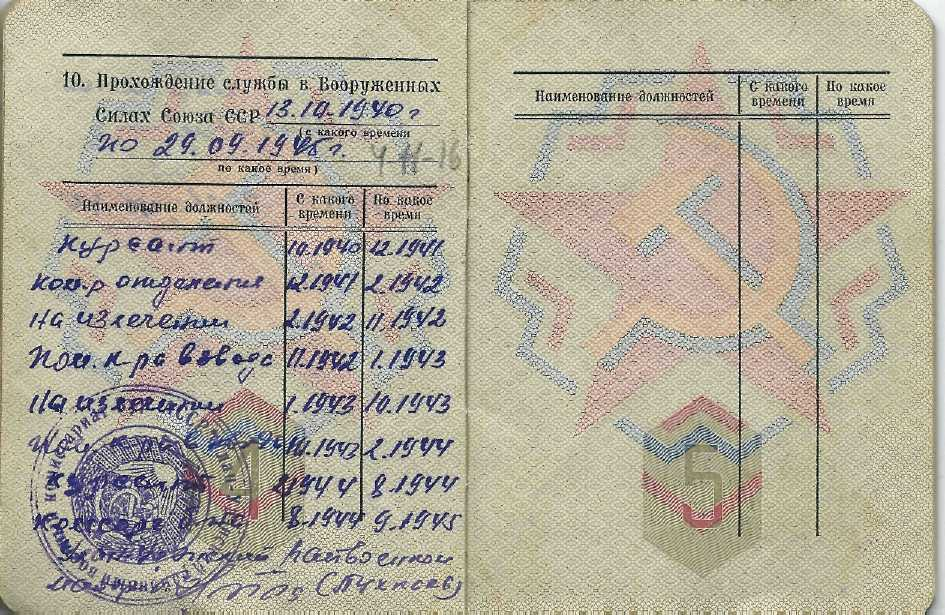 10. Прохождение службы в Вооруженных
Силах Союза ССР 13.10.1940 г
(с какого времени
по 29.09.1945 г.
по какое время)
Наименование должностей С какого времени По какое время
Курсант 10.1940 12.1941
ком-р отделения 12.1941 2.1942
На излечении 2.1942 11.1942
Пом. к-ра взвода 11.1942 1.1943
На излечении 1.1943 10.1943
Пом. к-ра 10.1943 2.1944
Курсант 2.1944 8.1944
8.1944 9.1945
Райвоенком
4
Наименование должностей С какого времени По какое время
5